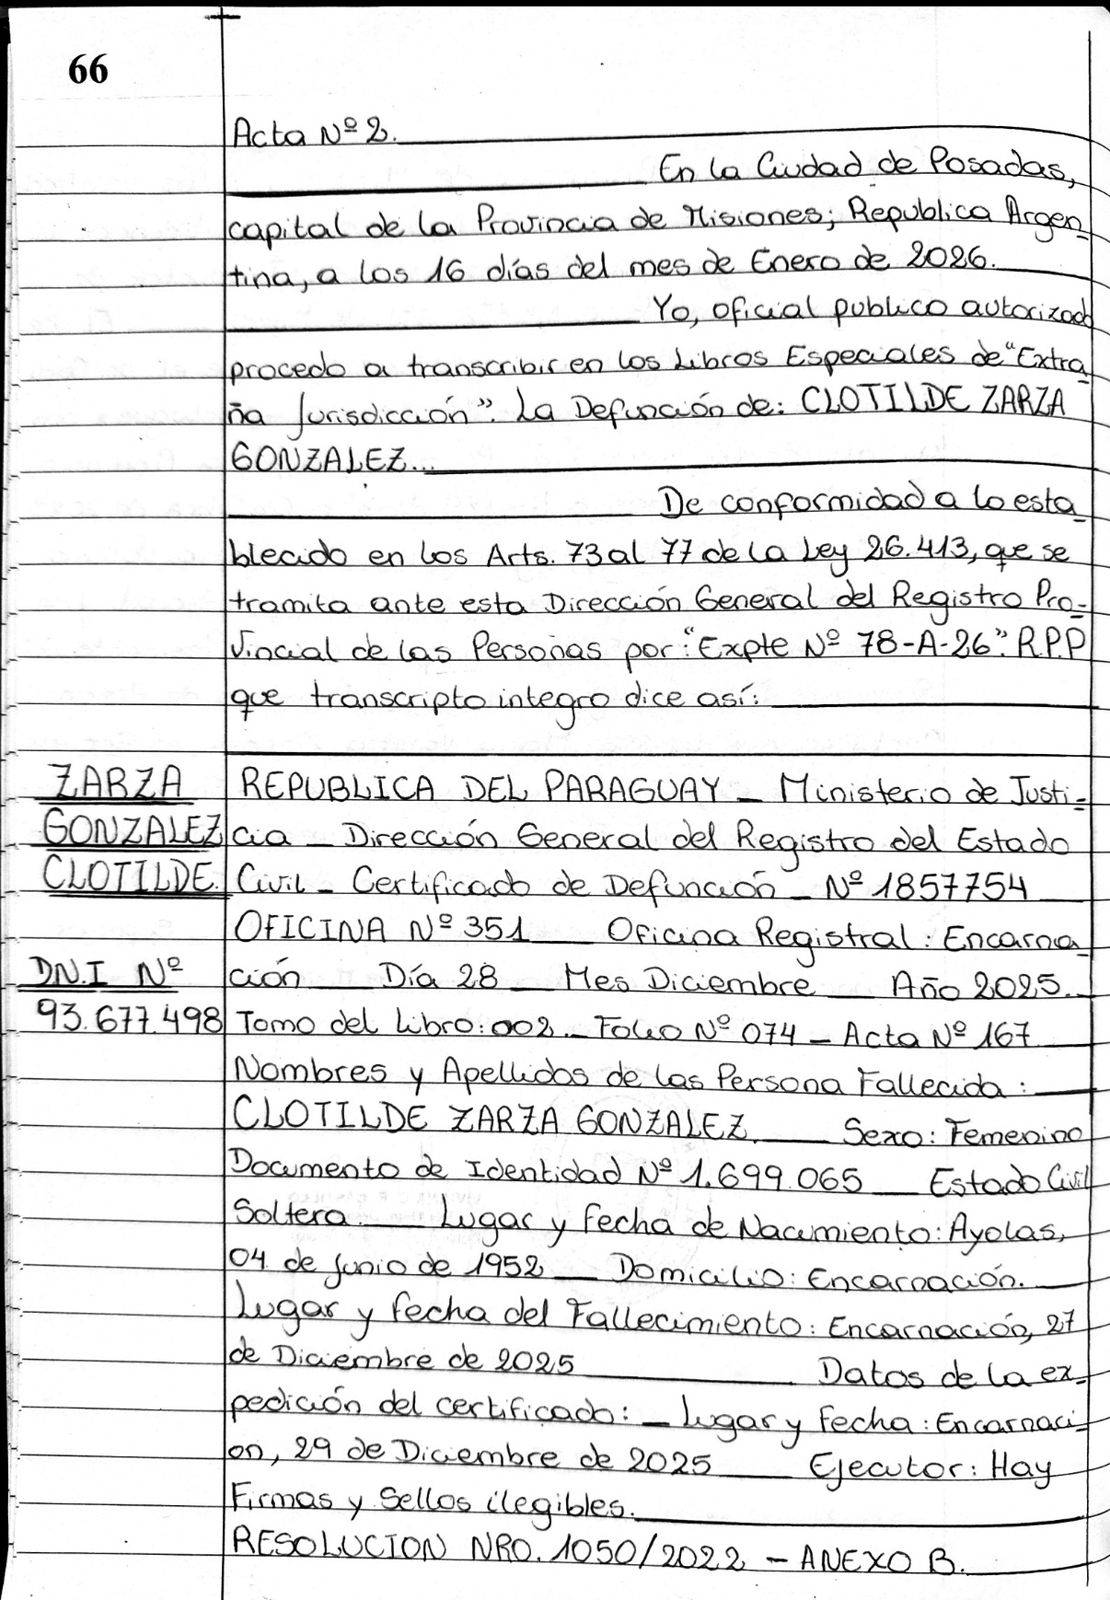 66
Acta Nº 2.
En la Ciudad de Posadas,
capital de la Provincia de Misiones; Republica Argen-
tina, a los 16 días del mes de Enero de 2026.
Yo, oficial publico autorizado
procedo a transcribir en los Libros Especiales de "Extra-
ña Jurisdicción". La Defunción de: CLOTILDE ZARZA
GONZALEZ...
De conformidad a lo esta-
blecido en los Arts. 73 al 77 de la Ley 26.413, que se
tramita ante esta Dirección General del Registro Pro-
vincial de las Personas por: "Expte Nº 78-A-26". R.P.P
que transcripto integro dice así:
ZARZA
GONZALEZ
CLOTILDE.
D.N.I Nº
93.677.498
REPUBLICA DEL PARAGUAY - Ministerio de Justi-
cia - Dirección General del Registro del Estado
Civil - Certificado de Defunción - Nº 1857754
OFICINA Nº 351 Oficina Registral: Encarna
ción Día 28 - Mes Diciembre Año 2025.
Tomo del Libro: 002 - Folio Nº 074 - Acta Nº 167
Nombres y Apellidos de las Persona Fallecida:
CLOTILDE ZARZA GONZALEZ Sexo: Femenino
Documento de Identidad Nº 1.699.065 Estado Civil
Soltera Lugar y fecha de Nacimiento: Ayolas,
04 de Junio de 1952 Domicilio: Encarnación.
Lugar y fecha del Fallecimiento: Encarnación, 27
de Diciembre de 2025 Datos de la ex-
pedición del certificado: - Lugar y fecha: Encarnaci-
on, 29 de Diciembre de 2025 Ejecutor: Hay
Firmas y Sellos ilegibles.
RESOLUCION NRO. 1050/2022 - ANEXO B.